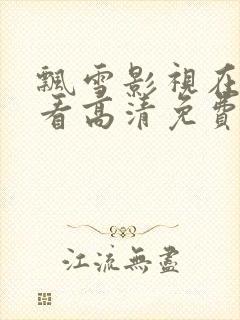 飄雪影視在
看高清免費
江流無盡